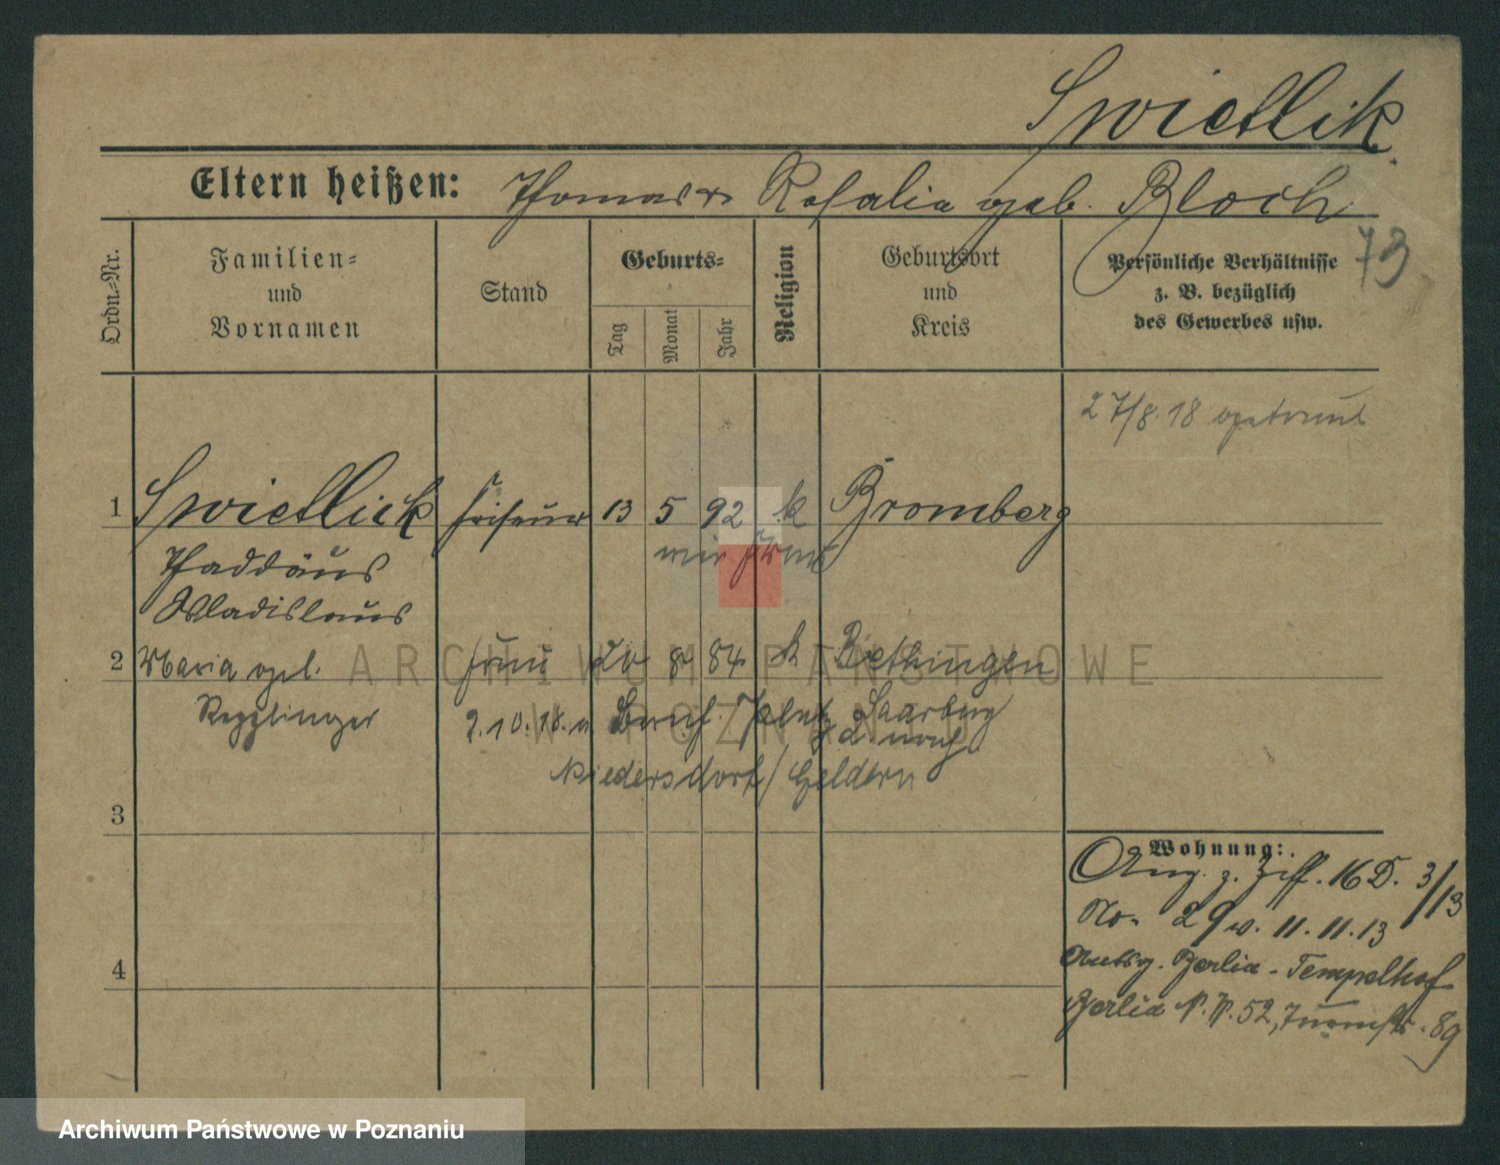 Swietlik
Eltern heißen: Thomas u Rosalia geb. Bloch
73
Ordn.-Nr.
Familien-
und
Vornamen
Stand
Geburts-
Tag
Monat
Jahr
Religion
Geburtsort
und
Kreis
Persönliche Verhältnisse
z. B. bezüglich
des Gewerbes usw.
27/8.18 getraut
1 Swietlick Friseur 13 5 92 k Bromberg
Thaddäus
Wladislaus
2 Maria geb. Frau 20 8 84 k Riethingen
Repplinger
9.10.18. Saarburg
nach
Niedersdorf / Geldern
3
4
Wohnung:
Ang. z. Ziff. 16 D. 3/13
No. 29 v. 11.11.13
Berlin - Tempelhof
Berlin N.W. 52, 89
ARCHIWUM PAŃSTWOWE
W POZNANIU
Archiwum Państwowe w Poznaniu